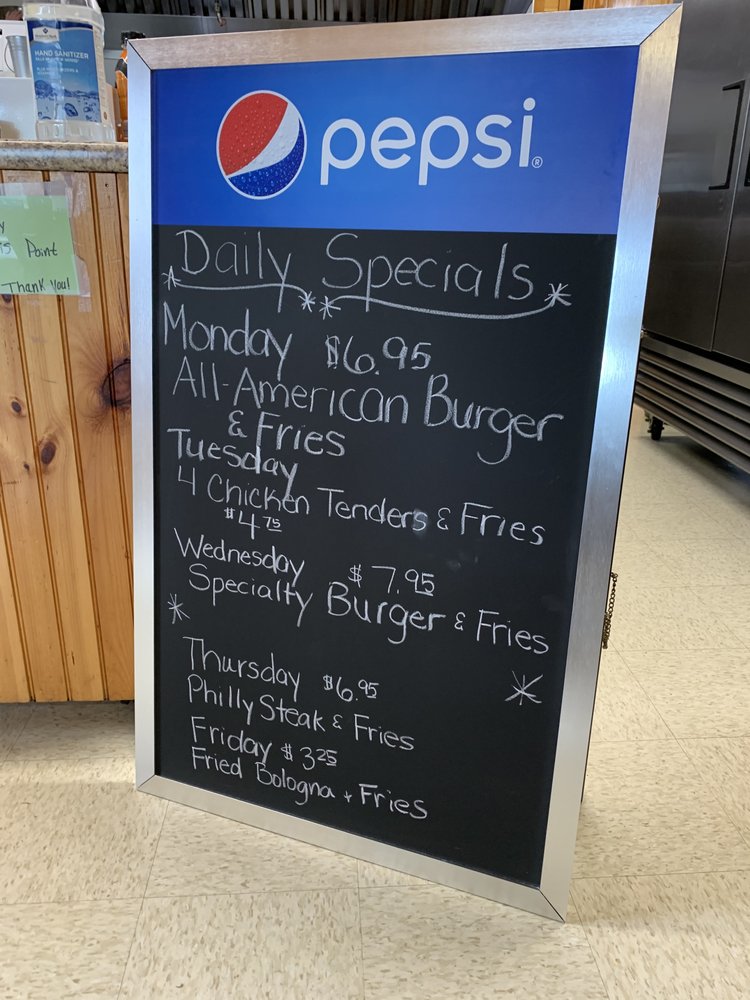 HAND SANITIZER
is Point
Thank you!
pepsi®
Daily Specials
Monday $6.95
All-American Burger
& Fries
Tuesday
4 Chicken Tenders & Fries
$4.75
Wednesday $7.95
Specialty Burger & Fries
Thursday $6.95
Philly Steak & Fries
Friday $3.25
Fried Bologna + Fries